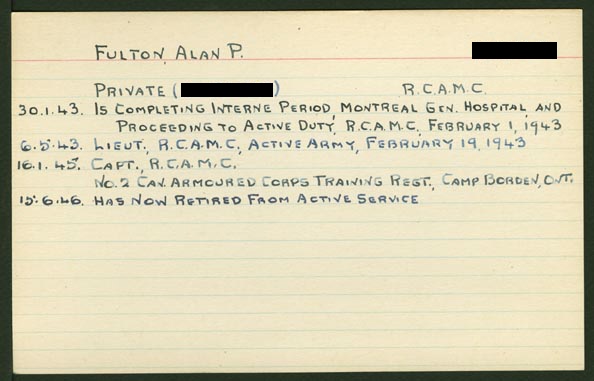 FULTON, ALAN P.
PRIVATE ( ) R.C.A.M.C.
30.1.43. IS COMPLETING INTERNE PERIOD, MONTREAL GEN. HOSPITAL, AND
PROCEEDING TO ACTIVE DUTY, R.C.A.M.C., FEBRUARY 1, 1943
6.5.43. LIEUT., R.C.A.M.C., ACTIVE ARMY, FEBRUARY 19, 1943
16.1.45. CAPT., R.C.A.M.C.
NO. 2 CAN. ARMOURED CORPS TRAINING REGT., CAMP BORDEN, ONT.
15.6.46. HAS NOW RETIRED FROM ACTIVE SERVICE